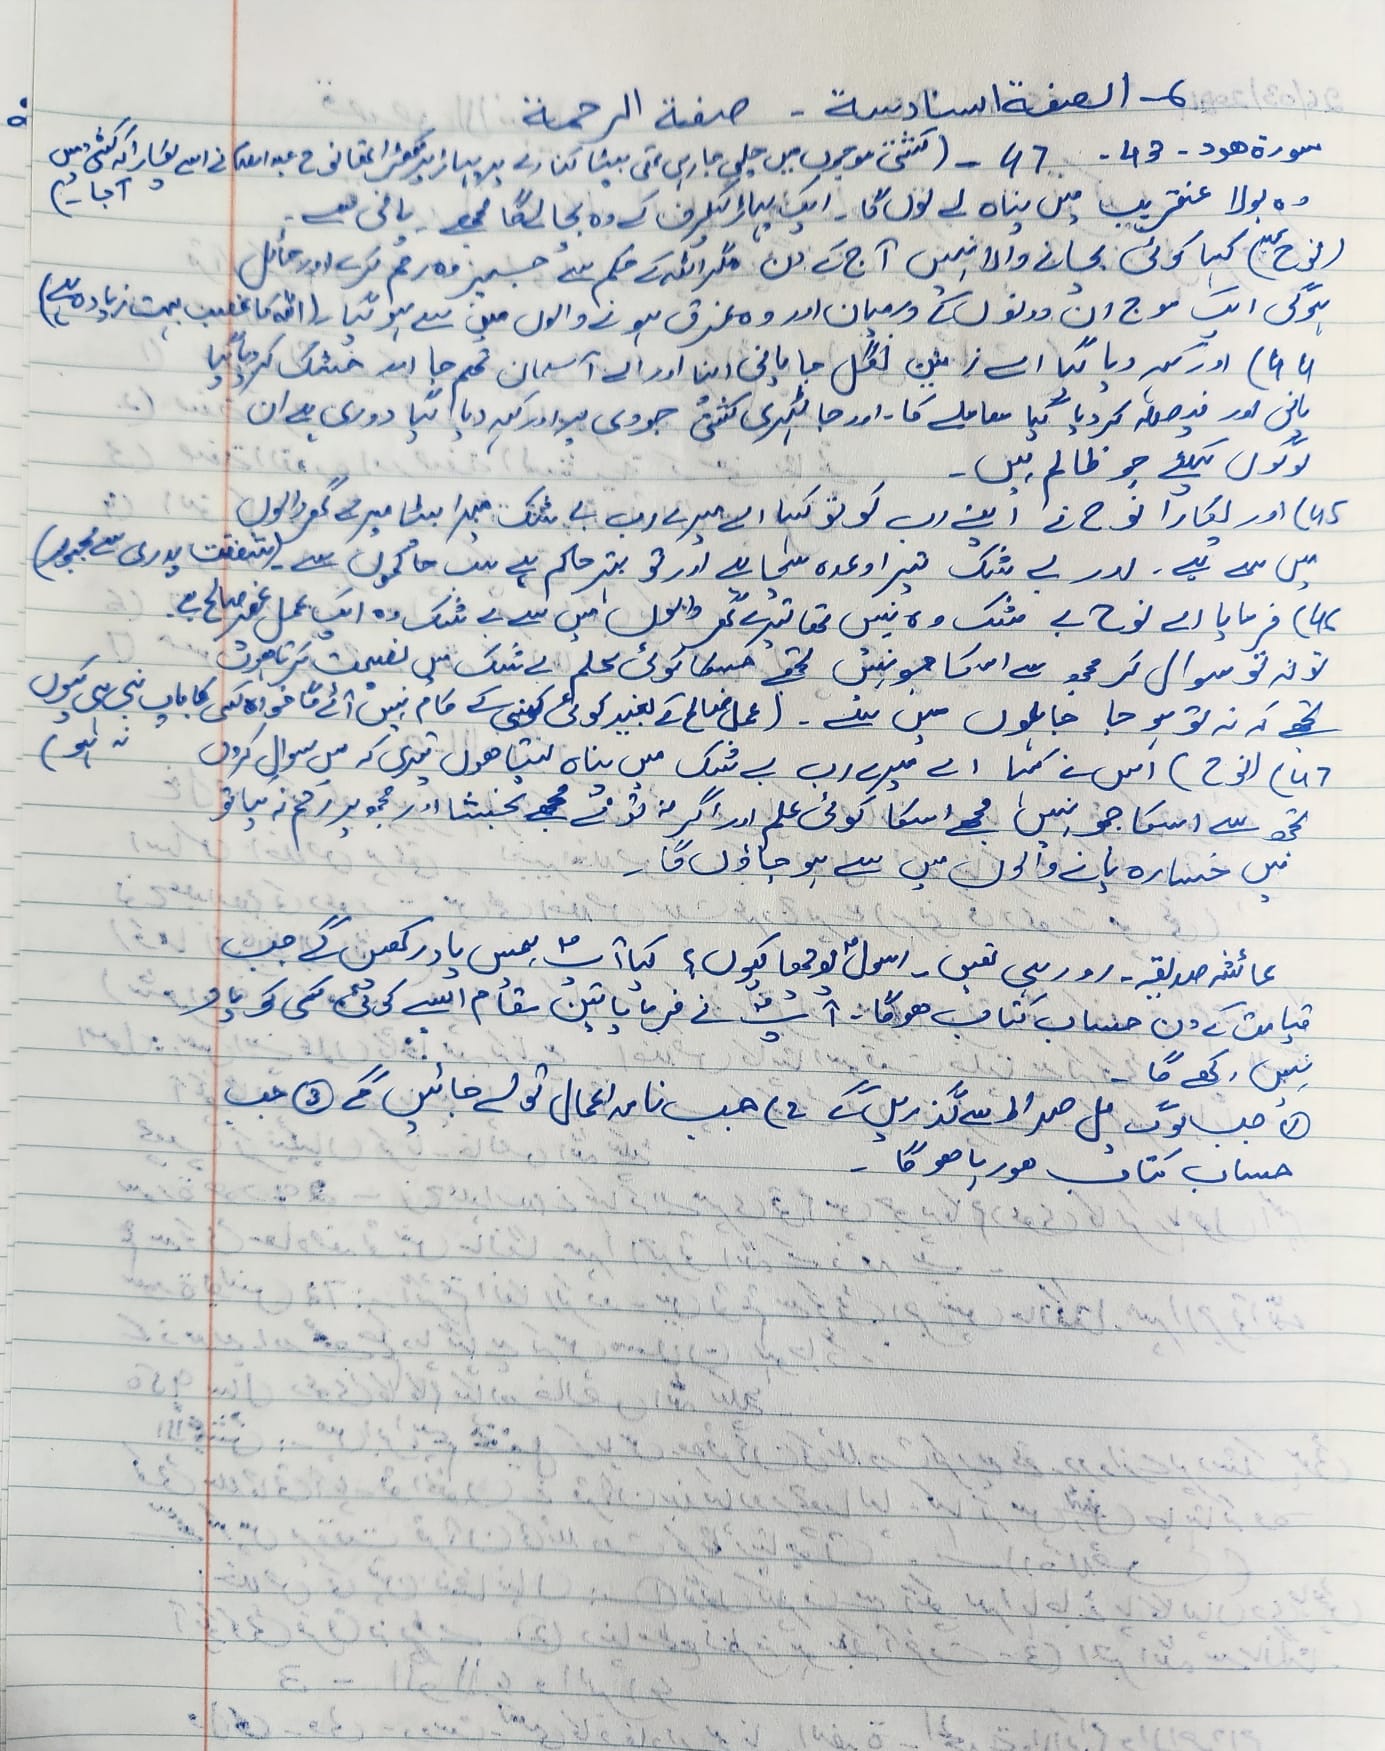 6- الصفة السادسة - صفة الرحمة
سورة ھود - 43 - 47 - (کشتی موجوں میں چلی جا رہی تھی بیٹا کنارے پر پہاڑ پر کھڑا تھا نوح علیہ السلام نے اسے پکارا کہ کشتی میں
آجا۔)
وہ بولا عنقریب میں پناہ لے لوں گا۔ ایک پہاڑ کیطرف کے وہ بچا لےگا مجھے۔ پانی سے۔
(نوح) کہا کوئی بچانے والا نہیں آج کے دن مگر اللہ کے حکم سے جسپر وہ رحم کرے اور حائل
ہوگی ایک موج ان دونوں کے درمیان اور وہ غرق ہونے والوں میں سے ہو گیا (اللہ کا غضب بہت زیادہ ہے)
44) اور کہہ دیا گیا اے زمین نگل جا پانی اپنا اور اے آسمان تھم جا اور خشک کر دیا گیا
پانی اور فیصلہ کر دیا گیا معاملے کا۔ اور جا ٹھہری کشتی جودی پر اور کہہ دیا گیا دوری ہے ان
لوگوں کیلئے جو ظالم ہیں۔
45) اور پکارا نوح نے اپنے رب کو تو کہا اے میرے رب بے شک میرا بیٹا میرے گھر والوں
میں سے ہے۔ اور بے شک تیرا وعدہ سچا ہے اور تو بہتر حاکم ہے سب حاکموں سے۔ (شفقت پدری سے مجبور)
46) فرمایا اے نوح بے شک وہ نہیں تھا تیرے گھر والوں میں سے بے شک وہ ایک عمل غیر صالح ہے۔
تو نہ تو سوال کر مجھ سے اسکا جو نہیں تجھے جسکا کوئی علم بے شک میں نصیحت کرتا ہوں
تجھے کہ نہ تو ہو جا جاہلوں میں سے۔ (عمل صالح کے بغیر کوئی کسی کے کام نہیں آئے گا خواہ کسی کا باپ نبی ہی کیوں
نہ ہو)
47) (نوح) اس نے کہا اے میرے رب بے شک میں پناہ لیتا ھوں تیری کہ میں سوال کروں
تجھ سے اسکا جو نہیں مجھے اسکا کوئی علم اور اگر نہ تو نے مجھے بخشا اور مجھ پر رحم نہ کیا تو
میں خسارہ پانے والوں میں سے ہو جاؤں گا۔
عائشہ صدیقہ۔ رو رہی تھیں۔ رسولؐ پوچھا کیوں؟ کیا آپؐ ہمیں یاد رکھیں گے جب
قیامت کے دن حساب کتاب ھوگا۔ آپؐ نے فرمایا تین مقام ایسے کوئی کسی کو یاد
نہیں رکھے گا۔
① جب لوگ پل صراط سے گذریں گے 2) جب نامہ اعمال تولے جائیں گے ③ جب
حساب کتاب ھو رہا ھو گا۔